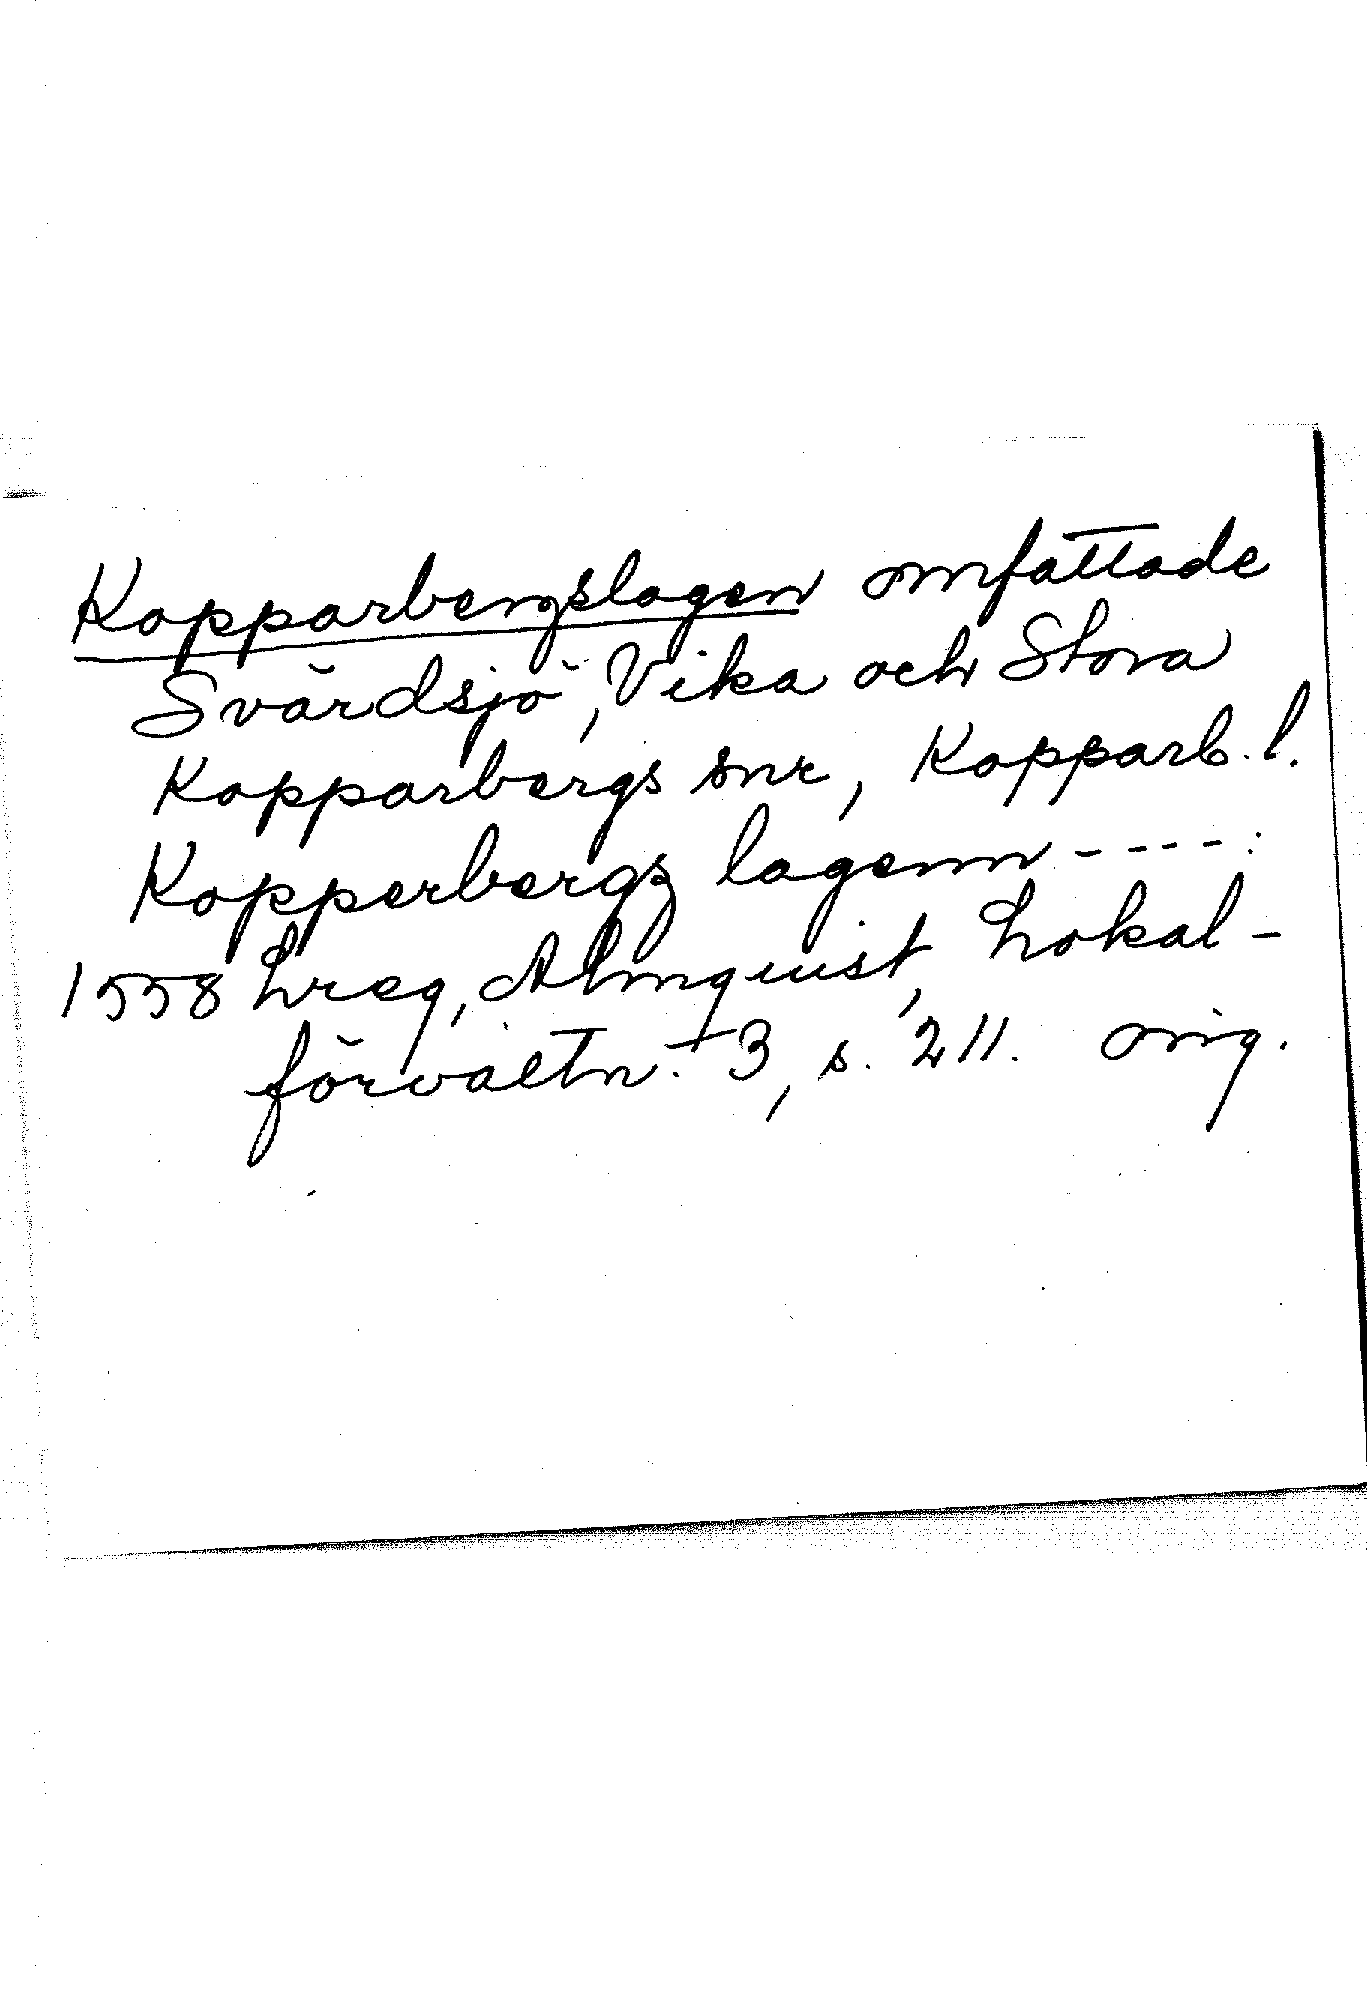 Kopparbergslagen omfattade
Svärdsjö, Vika och Stora
Kopparbergs snr, Kopparb. l.
Kopperbergz lagenn - - - - :
1558 Lreg, Almquist, Lokal-
förvaltn. 3, s. 211. orig.